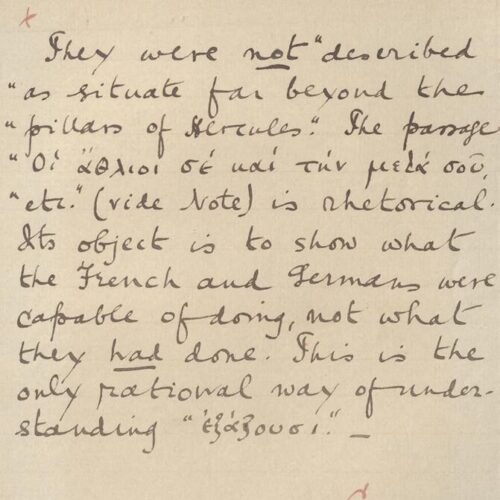 They were not "described
"as situate far beyond the
"pillars of Hercules". The passage
"Οἱ ἄθλιοι σέ καί τήν μετά σοῦ,
"etc." (vide Note) is rhetorical.
Its object is to show what
the French and Germans were
capable of doing, not what
they had done. This is the
only rational way of under-
standing "ἐξάξουσι." _